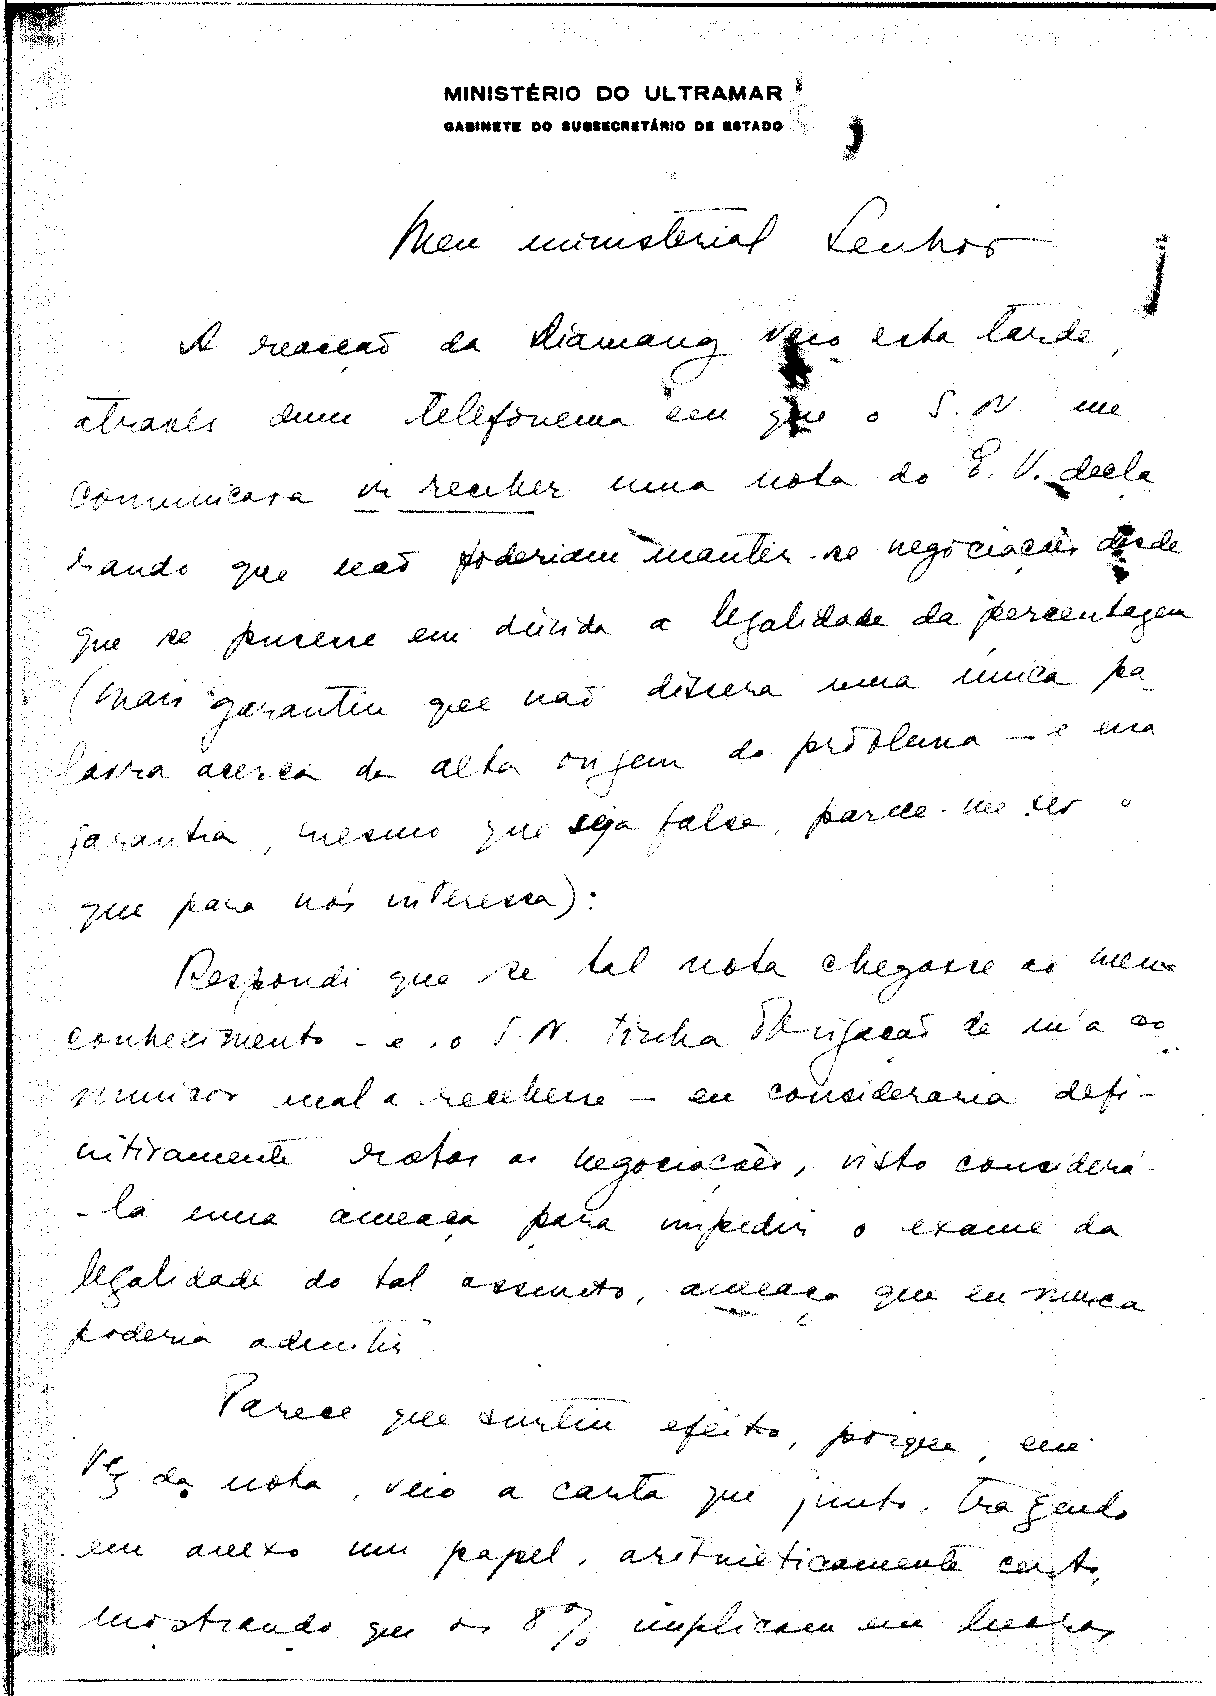 MINISTÉRIO DO ULTRAMAR
GABINETE DO SUBSECRETÁRIO DE ESTADO
Meu ministerial Senhor
A reacção da Diamang veio esta tarde,
através dum telefonema em que o S. N. me
comunicava ir receber uma nota do E. V. decla
rando que não poderiam manter-se negociações desde
que se pusesse em dúvida a legalidade da percentagem
(mais garantiu que não dissera uma única pa
lavra acerca da alta origem do problema — e essa
garantia, mesmo que seja falsa, parece-me ser o
que para nós interessa):
Respondi que se tal nota chegasse ao meu
conhecimento - e o S. N. tinha obrigação de m'a co
municar mal a recebesse — eu consideraria defi-
nitivamente rotas as negociações, visto considerá-
-la uma ameaça para impedir o exame da
legalidade do tal assunto, ameaça que eu nunca
poderia admitir
Parece que surtiu efeito, porque, em
vez da nota, veio a carta que junto, trazendo
em anexo um papel, aritmèticamente certo,
mostrando que os 8% implicam em